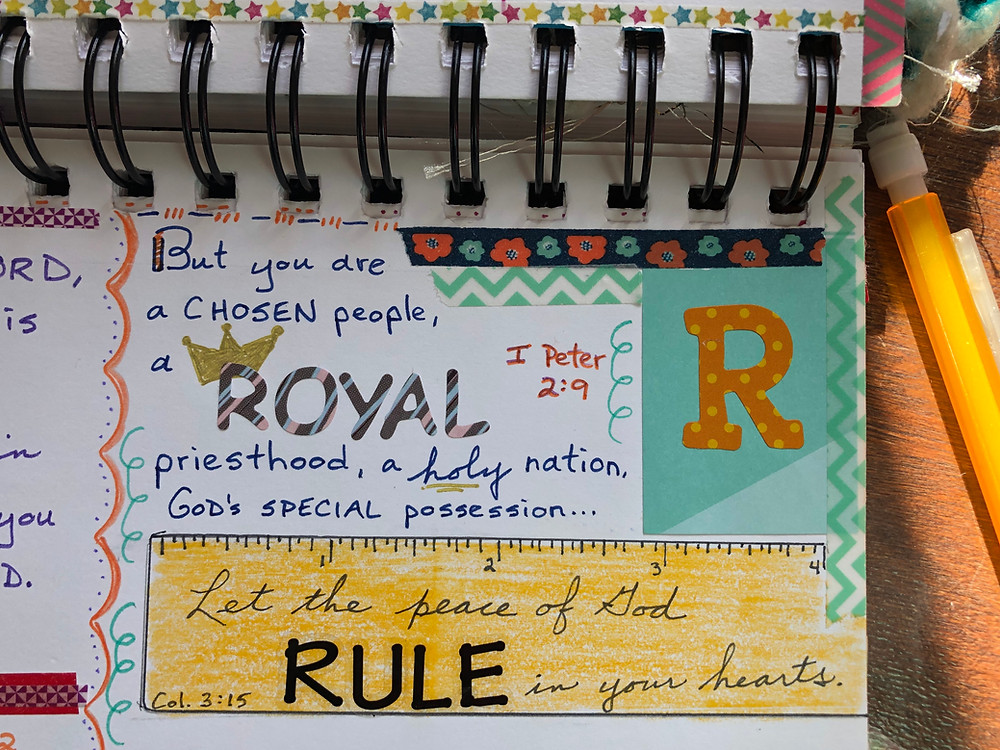 ORD,
is
in
you
D.
But you are
a CHOSEN people,
a
ROYAL
priesthood, a holy nation,
GOD'S SPECIAL possession...
I Peter
2:9
R
1 2 3 4
Let the peace of God
RULE in your hearts.
Col. 3:15